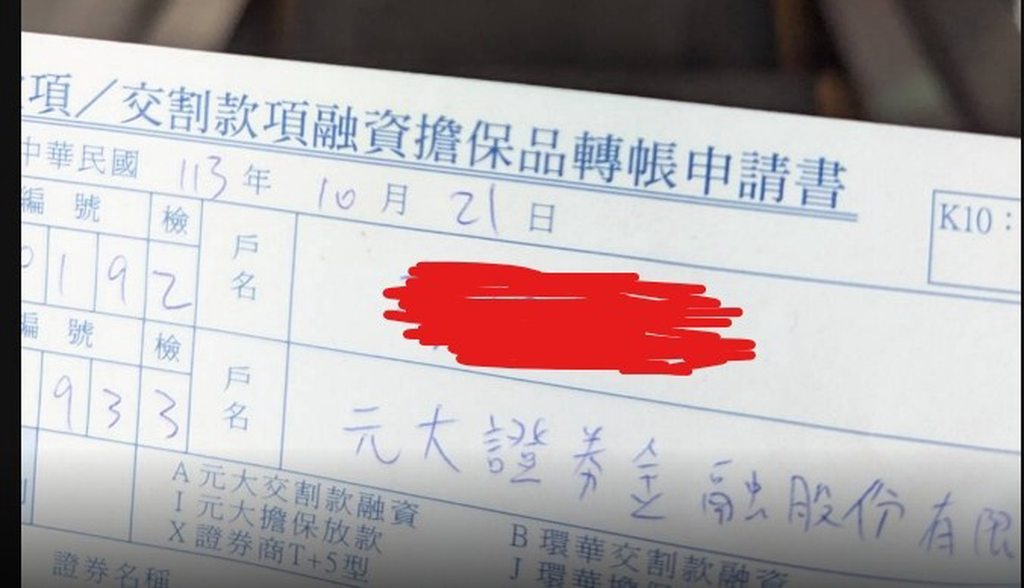 項／交割款項融資擔保品轉帳申請書
中華民國 113 年 10 月 21 日
K10：
編號 檢
192
戶名
編號 檢
933
戶名 元大證券金融股份有限
A 元大交割款融資
I 元大擔保放款
X 證券商T+5型
B 環華交割款融資
J 環華擔保
證券名稱